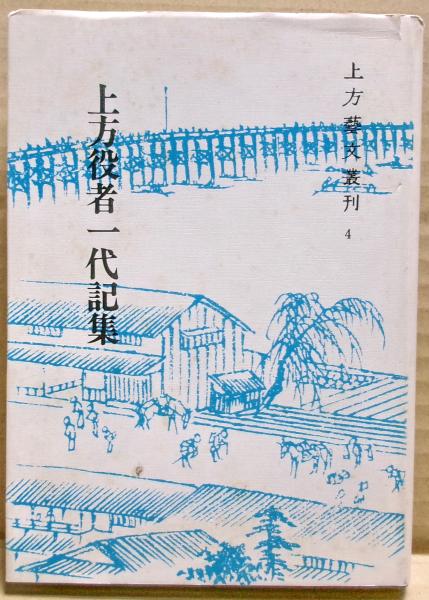 上方藝文叢刊 4
上方役者一代記集